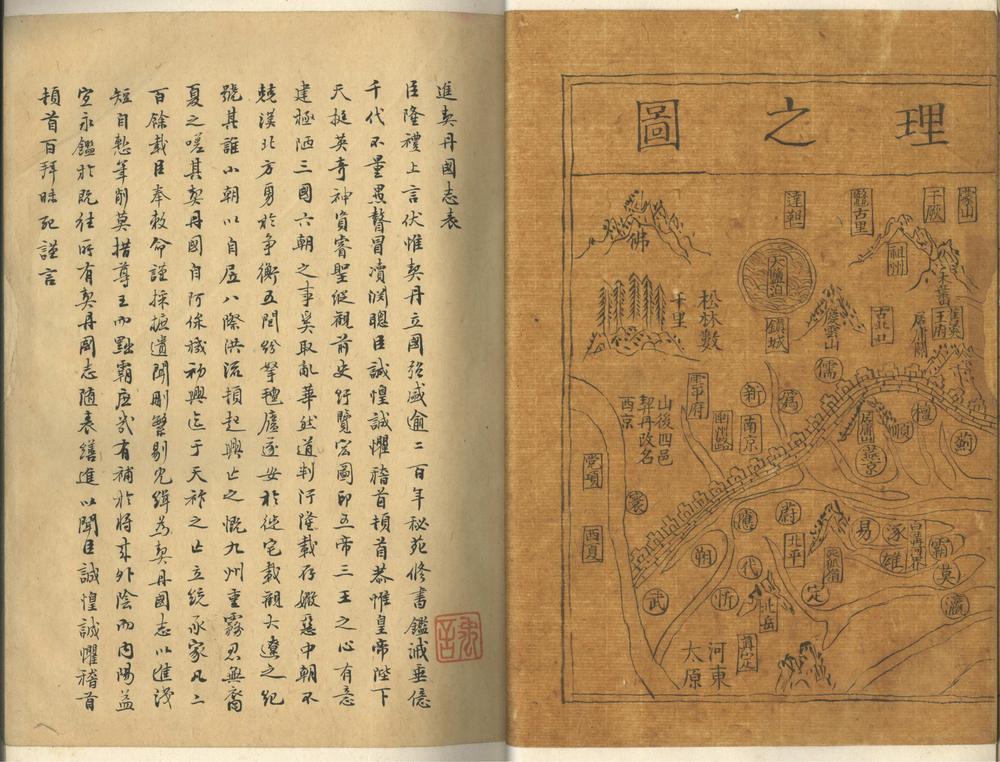 理之圖
蒙山
子厥
鼈古里
達靼
佛
祖州
大鹽泊
鎮城
松林數
千里
古北口
王府
儒
媯
新
雲中府
幽州路
南京
山後四邑
契丹改名
西京
居庸關
檀
順
薊
居庸山
燕京
党項
西夏
寰
應
蔚
朔
武
代
忻
北平
定
易
涿
雄
白溝河界
霸
莫
瀛
北岳
真定
河東
太原
進契丹國志表
臣隆禮上言伏惟契丹立國強盛逾二百年秘苑修書鑑誡垂億
千代不量愚瞽冒凟淵聰臣誠惶誠懼稽首頓首恭惟皇帝陛下
天挺英奇神資睿聖縱觀前史行覽宏圖即五帝三王之心有意
建極陋三國六朝之事奚取亂華然道判汙隆載存媺惡中朝不
競漢北方勇於争衡五閏紛拏氊廬遂安於徙宅載觀大遼之紀
號其誰小朝以自居八際洪流頓起興亡之慨九州重霧忍無裔
夏之嗟其契丹國自阿保機初興迄于天祚之亡立統承家凡二
百餘載臣奉敕命謹採摭遺聞刪繁剔冗緝為契丹國志以進淺
短自慙筆削莫措尊王而黜霸庶幾有補於將來外陰而内陽益
宜永鑑於既往所有契丹國志隨表繕進以聞臣誠惶誠懼稽首
頓首百拜昧死謹言